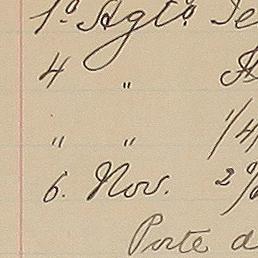 1º Agtº Te
4 "
" " 1/4
6. Nov. 2º/
Porte d